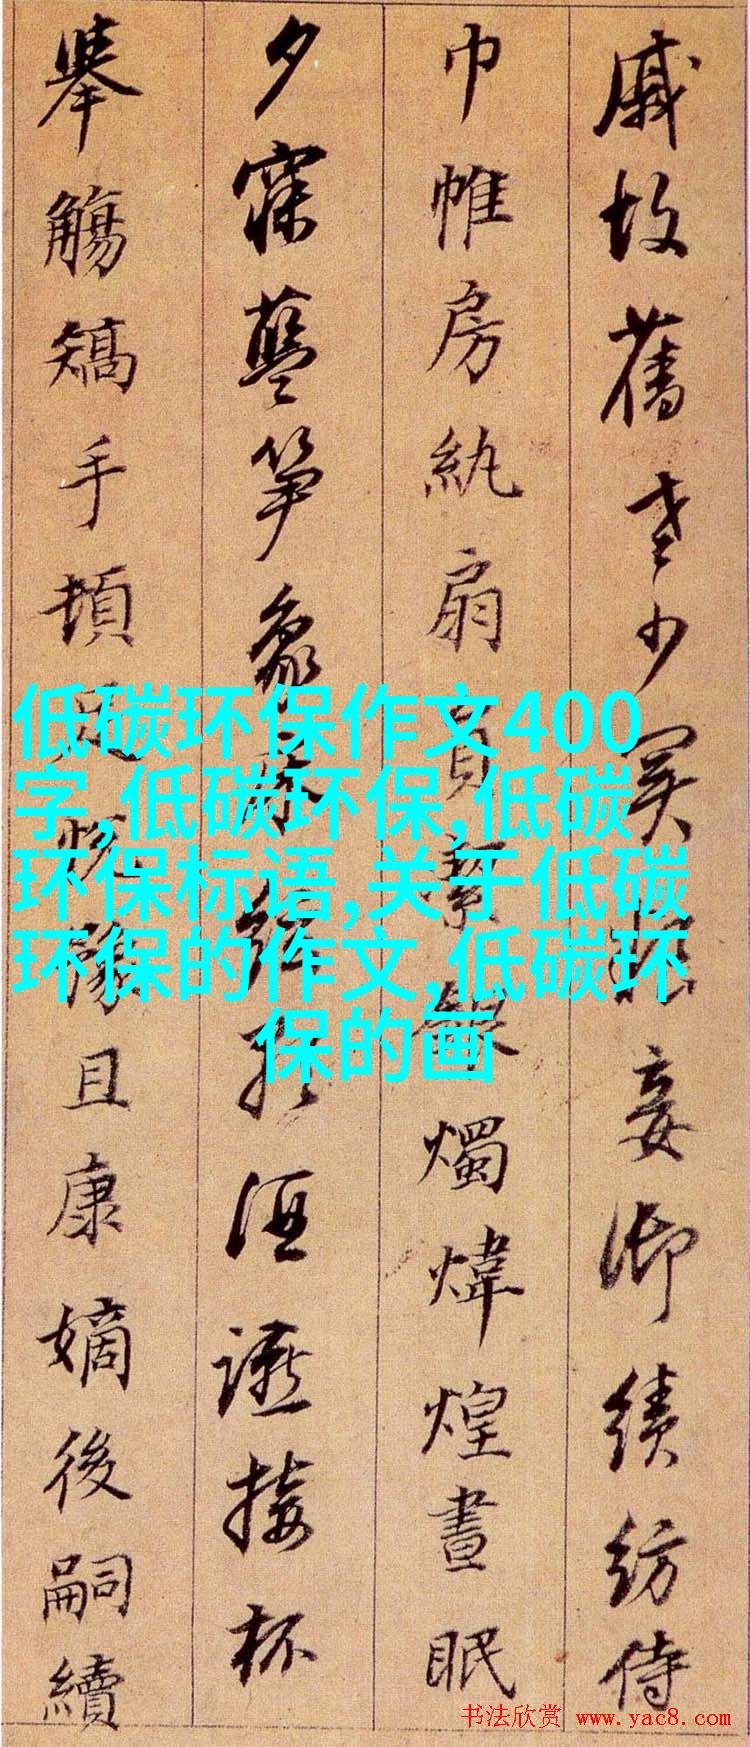 戚故舊老少異粮妾御績紡侍
巾帷房紈扇員絜銀燭煒煌晝眠
夕寐藍笋象床絃歌酒讌接杯
舉觴矯手頓足悅豫且康嫡後嗣續
低碳环保作文400
字,低碳环保,低碳
环保标语,关于低碳
环保的作文,低碳环
保的画
书法欣赏 www.yac8.com